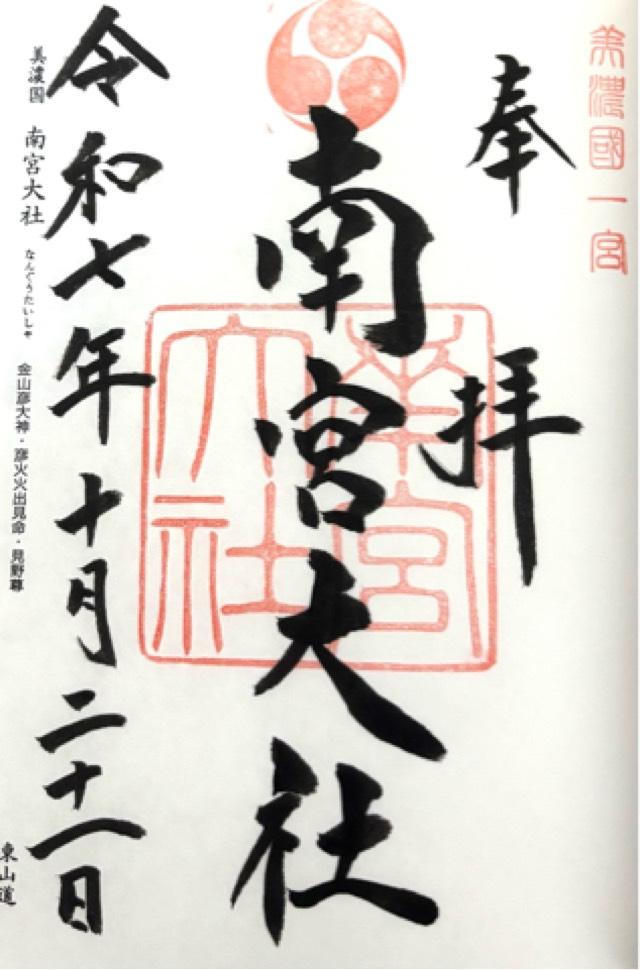 美濃國一宮
奉拝
南宮大社
南宮大社
令和七年十月二十一日
美濃国 南宮大社 なんぐうたいしゃ 金山彦大神・彦火火出見命・見野尊
東山道